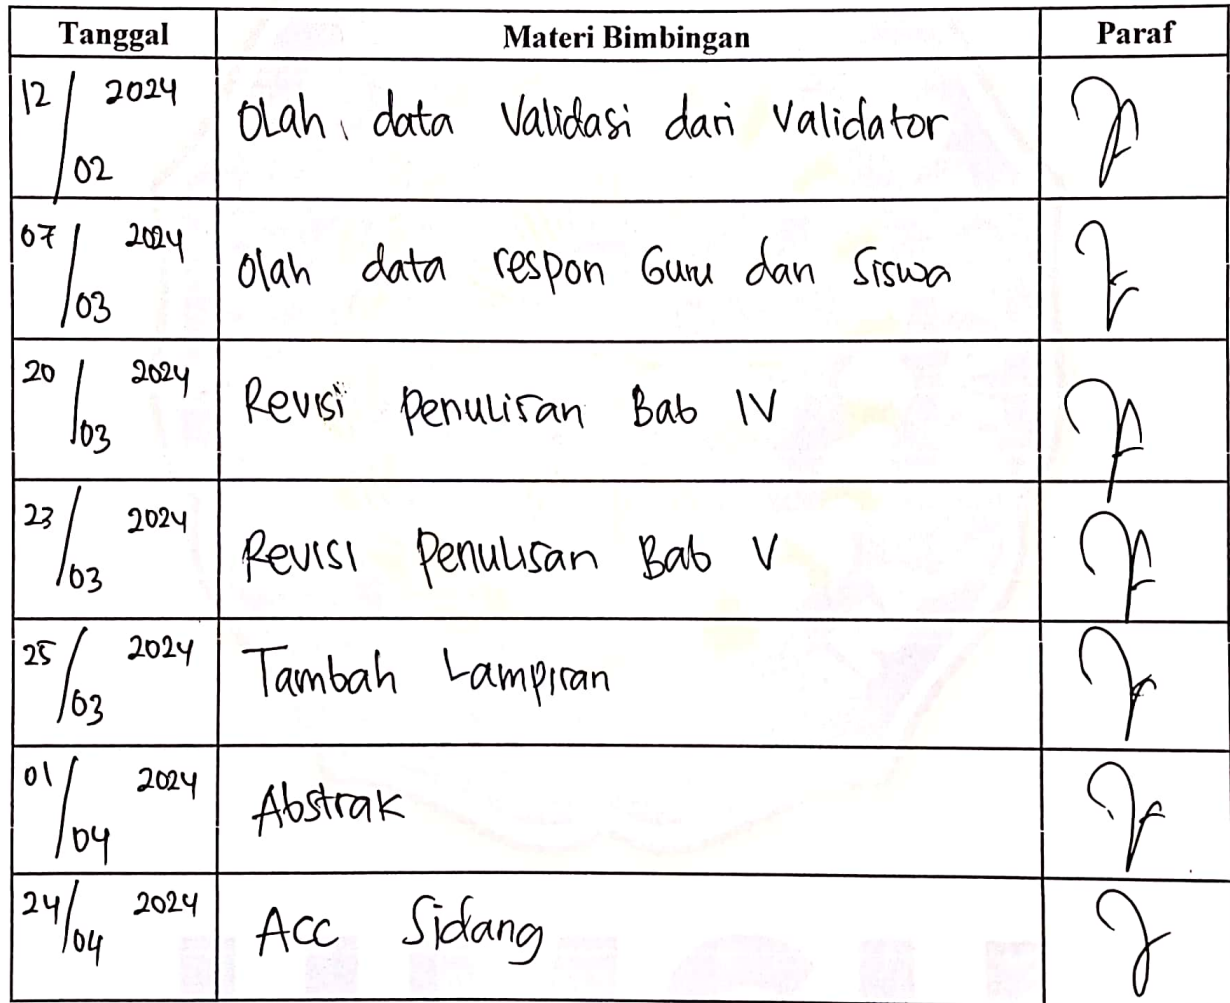 Tanggal Materi Bimbingan Paraf
12/02 2024 Olah data Validasi dari Validator
07/03 2024 Olah data respon Guru dan Siswa
20/03 2024 Revisi Penulisan Bab IV
23/03 2024 Revisi Penulisan Bab V
25/03 2024 Tambah Lampiran
01/04 2024 Abstrak
24/04 2024 Acc Sidang